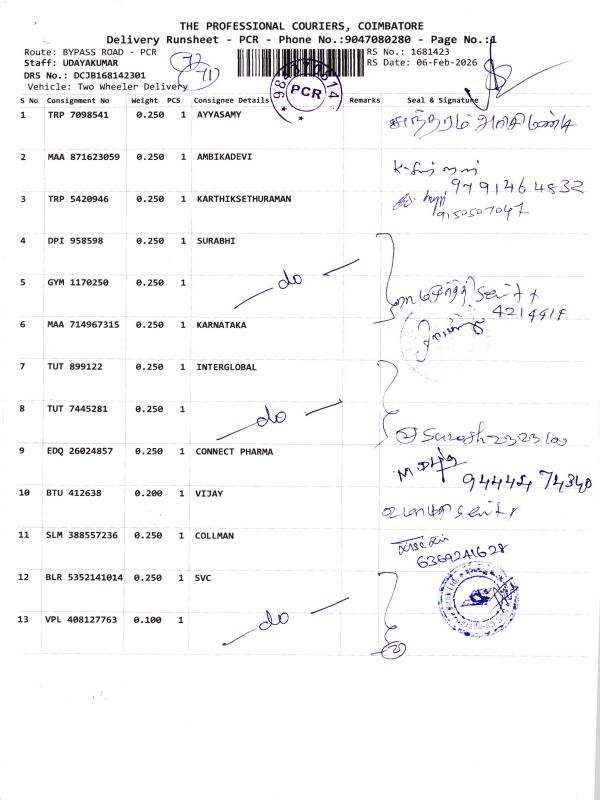 THE PROFESSIONAL COURIERS, COIMBATORE
Delivery Runsheet - PCR - Phone No.:9047080280 - Page No.:1
Route: BYPASS ROAD - PCR
RS No.: 1681423
Staff: UDAYAKUMAR
RS Date: 06-Feb-2026
DRS No.: DCJB168142301
Vehicle: Two Wheeler Delivery
PCR
S No Consignment No Weight PCS Consignee Details Remarks Seal & Signature
1 TRP 7098541 0.250 1 AYYASAMY
2 MAA 871623059 0.250 1 AMBIKADEVI
9791464832
3 TRP 5420946 0.250 1 KARTHIKSETHURAMAN
9150507047
4 DPI 958598 0.250 1 SURABHI
5 GYM 1170250 0.250 1 — do —
4214419
6 MAA 714967315 0.250 1 KARNATAKA
7 TUT 899122 0.250 1 INTERGLOBAL
8 TUT 7445281 0.250 1 — do —
Suresh
9 EDQ 26024857 0.250 1 CONNECT PHARMA
94444 74340
10 BTU 412638 0.200 1 VIJAY
11 SLM 388557236 0.250 1 COLLMAN
6369241628
12 BLR 5352141014 0.250 1 SVC
13 VPL 408127763 0.100 1 — do —